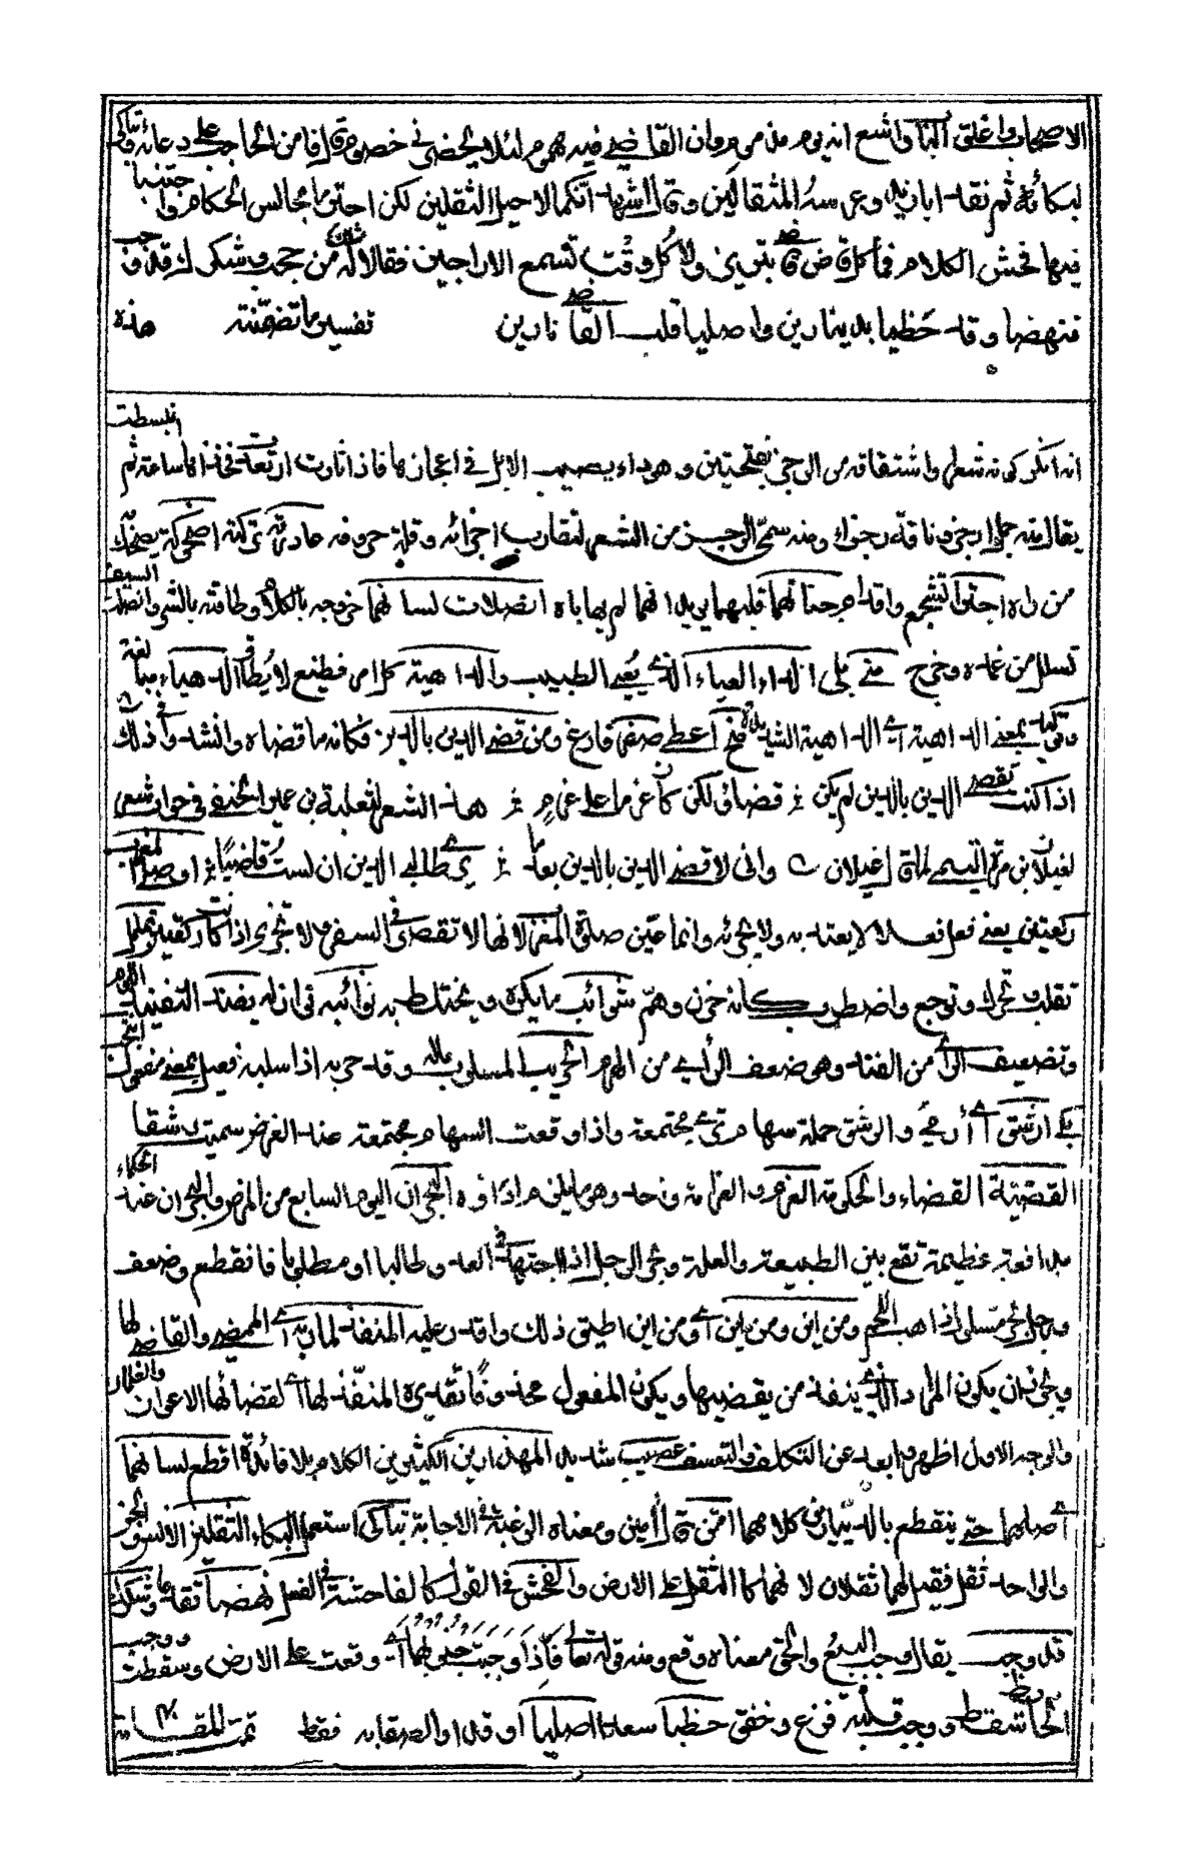 الاصحاب واغلق الباب واشع انه يوم مذموم وان القاضي فيه مهموم لئلا يحضرني خصوم قال فامن الحاجب على دعائه وتباكى
لبكائه ثم نقد ابا زيد وعرسه المثقالين وقال اشهد انكما لاحيل الثقلين لكن احترما مجالس الحكام واجتنبا
فيها فحش الكلام فما كل قاض قاضي تبريز ولا كل وقت تسمع الاراجيز فقالا له مثلك من حجب وشكرك قد وجب
فنهضا وقد حظيا بدينارين واصليا قلب القاضي نارين تفسير ما تضمنته هذه

انه انكر كونه شعرا واشتقاقه من الرجز بفتحتين وهو داء يصيب الابل في اعجازها فاذا ثارت ارتعدت فخذاها ساعة ثم انبسطت
يقال منه جمل ارجز وناقة رجزاء ومنه سمي الرجز من الشعر لتقارب اجزائه وقلة حروفه غادرته تركته اضحوكة يضحك
من راه اجترا تشجع واقدام جنانهما قلبهما يريد انهما لم يهاباه انصلات لسانهما خروجه بالكلام وطاقته بالشر وانصلت السيف
تسلل من غمده وخرج مني بلي الداء العياء الذي يعي الطبيب والداهية كل امر فظيع لا يطاق الدهياء مبالغة
وتوكيد بمعنى الداهية اي الداهية الشديدة فمن اعطى صفر فارغ ومن قضى الدين بالدين فكانه ما قضاه وانشد في ذلك
اذا كنت تقضي الدين بالدين لم يكن قضاء ولكن كان غرما على غرم هذا الشعر لثعلبة بن عمير الحنفي في جواب شعر
لغيلان بن مرة التيمي لما قال غيلان واني لاقضي الدين بالدين بعد ما يرى طالبي الدين ان لست قاضيا او صلى المغرب
ركعتين يعني فعل فعلا لا يعتد به ولا يجزئه وانما عين صلاة المغرب لانها لا تقصر في السفر ولا تجزي اذا كانت ركعتين تململ
تقلب وتحرك وتوجع واضطرب وكانه حزن وهم شوائب ما يكره ويختلط به نوائبه قرانه يفند التفنيد اللوم
وتضعيف الراي من الفند وهو ضعف الراي من الهرم الحريب المسلوب ماله وقد حربه اذا سلبه فعيل بمعنى مفعول
ارشق اي أرمي والرشق حملة سهام ترمى مجتمعة واذا وقعت السهام مجتمعة عند الغرض سميت رشقا
القضية القضاء والحكومة الغرم والغرامة واحد وهو ما يلزم اداؤه البحران اليوم السابع من المرض والبحران عند الحكماء
مدافعة عظيمة تقع بين الطبيعة والعلة وبحر الرجل اذا اجتهد في العدو طالبا او مطلوبا فانقطع وضعف
ورجل بحر مسلول ذاهب اللحم ومن اين ومن اين اي ومن اين اطيق ذلك واقدر عليه المنفذ لمآربه اي الممضي والقاضي لها
ويجوز ان يكون المراد الذي ينفذ من يقضيها ويكون المفعول محذوفا تقديره المنفذ لها اي لقضائها الاعوان والغلمان
والوجه الاول اظهر وابعد عن التكلف والتعسف عصيب شديد المهذارين الكثيرين الكلام بلا فائدة اقطع لسانهما
اي اصلهما حتى ينقطع بالدينارين كلامهما امن قال امين ومعناه الرغبة في الاجابة تباكى استعمل البكاء الثقلين الانس والجن
والواحد ثقل فقيل لهما ثقلان لانهما كالثقل على الارض والفحش في القول كالفاحشة في الفعل نهضا تقدما وشكرك
قد وجب يقال وجب البيع والحق معناه وقع ومنه قوله تعالى فاذا وجبت جنوبها اي وقعت على الارض وسقطت ووجب
الحائط سقط ووجب قلبه فزع وخفق حظيا سعدا اصليا اوقدا والصقا به فقط تمت المقامة